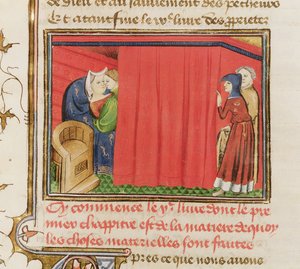 de dieu et au sauvement des pecheurs
Et atant fine le vᵉ livre des prieter
Cy commence le vjᵉ livre dont le pre
mier chappitre est de la matiere de quoy
les choses materielles sont faictes
pres ce que nous avons